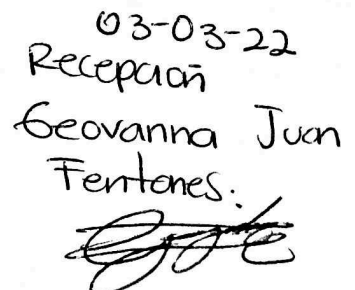 03-03-22
Recepción
Geovanna Juan
Fentanes.